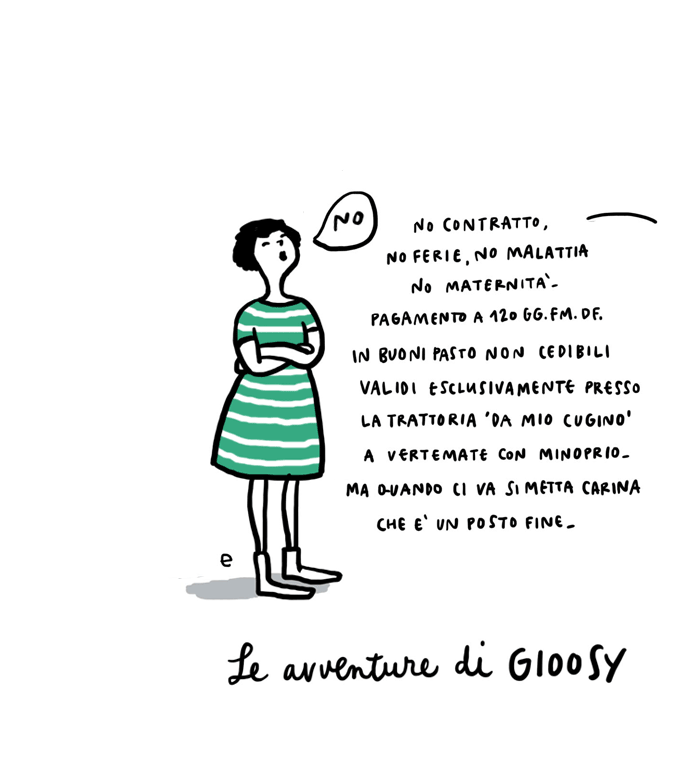 NO
NO CONTRATTO,
NO FERIE, NO MALATTIA
NO MATERNITA'-
PAGAMENTO A 120 GG.FM.DF.
IN BUONI PASTO NON CEDIBILI
VALIDI ESCLUSIVAMENTE PRESSO
LA TRATTORIA 'DA MIO CUGINO'
A VERTEMATE CON MINOPRIO_
MA QUANDO CI VA SI METTA CARINA
CHE E' UN POSTO FINE_
e
Le avventure di GIOOSY